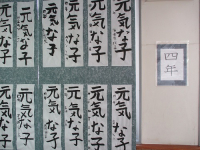 元気な子
元気な子
元気な子
元気な子
元気な子
元気な子
元気な子
元気な子
元気な子
元気な子
四年